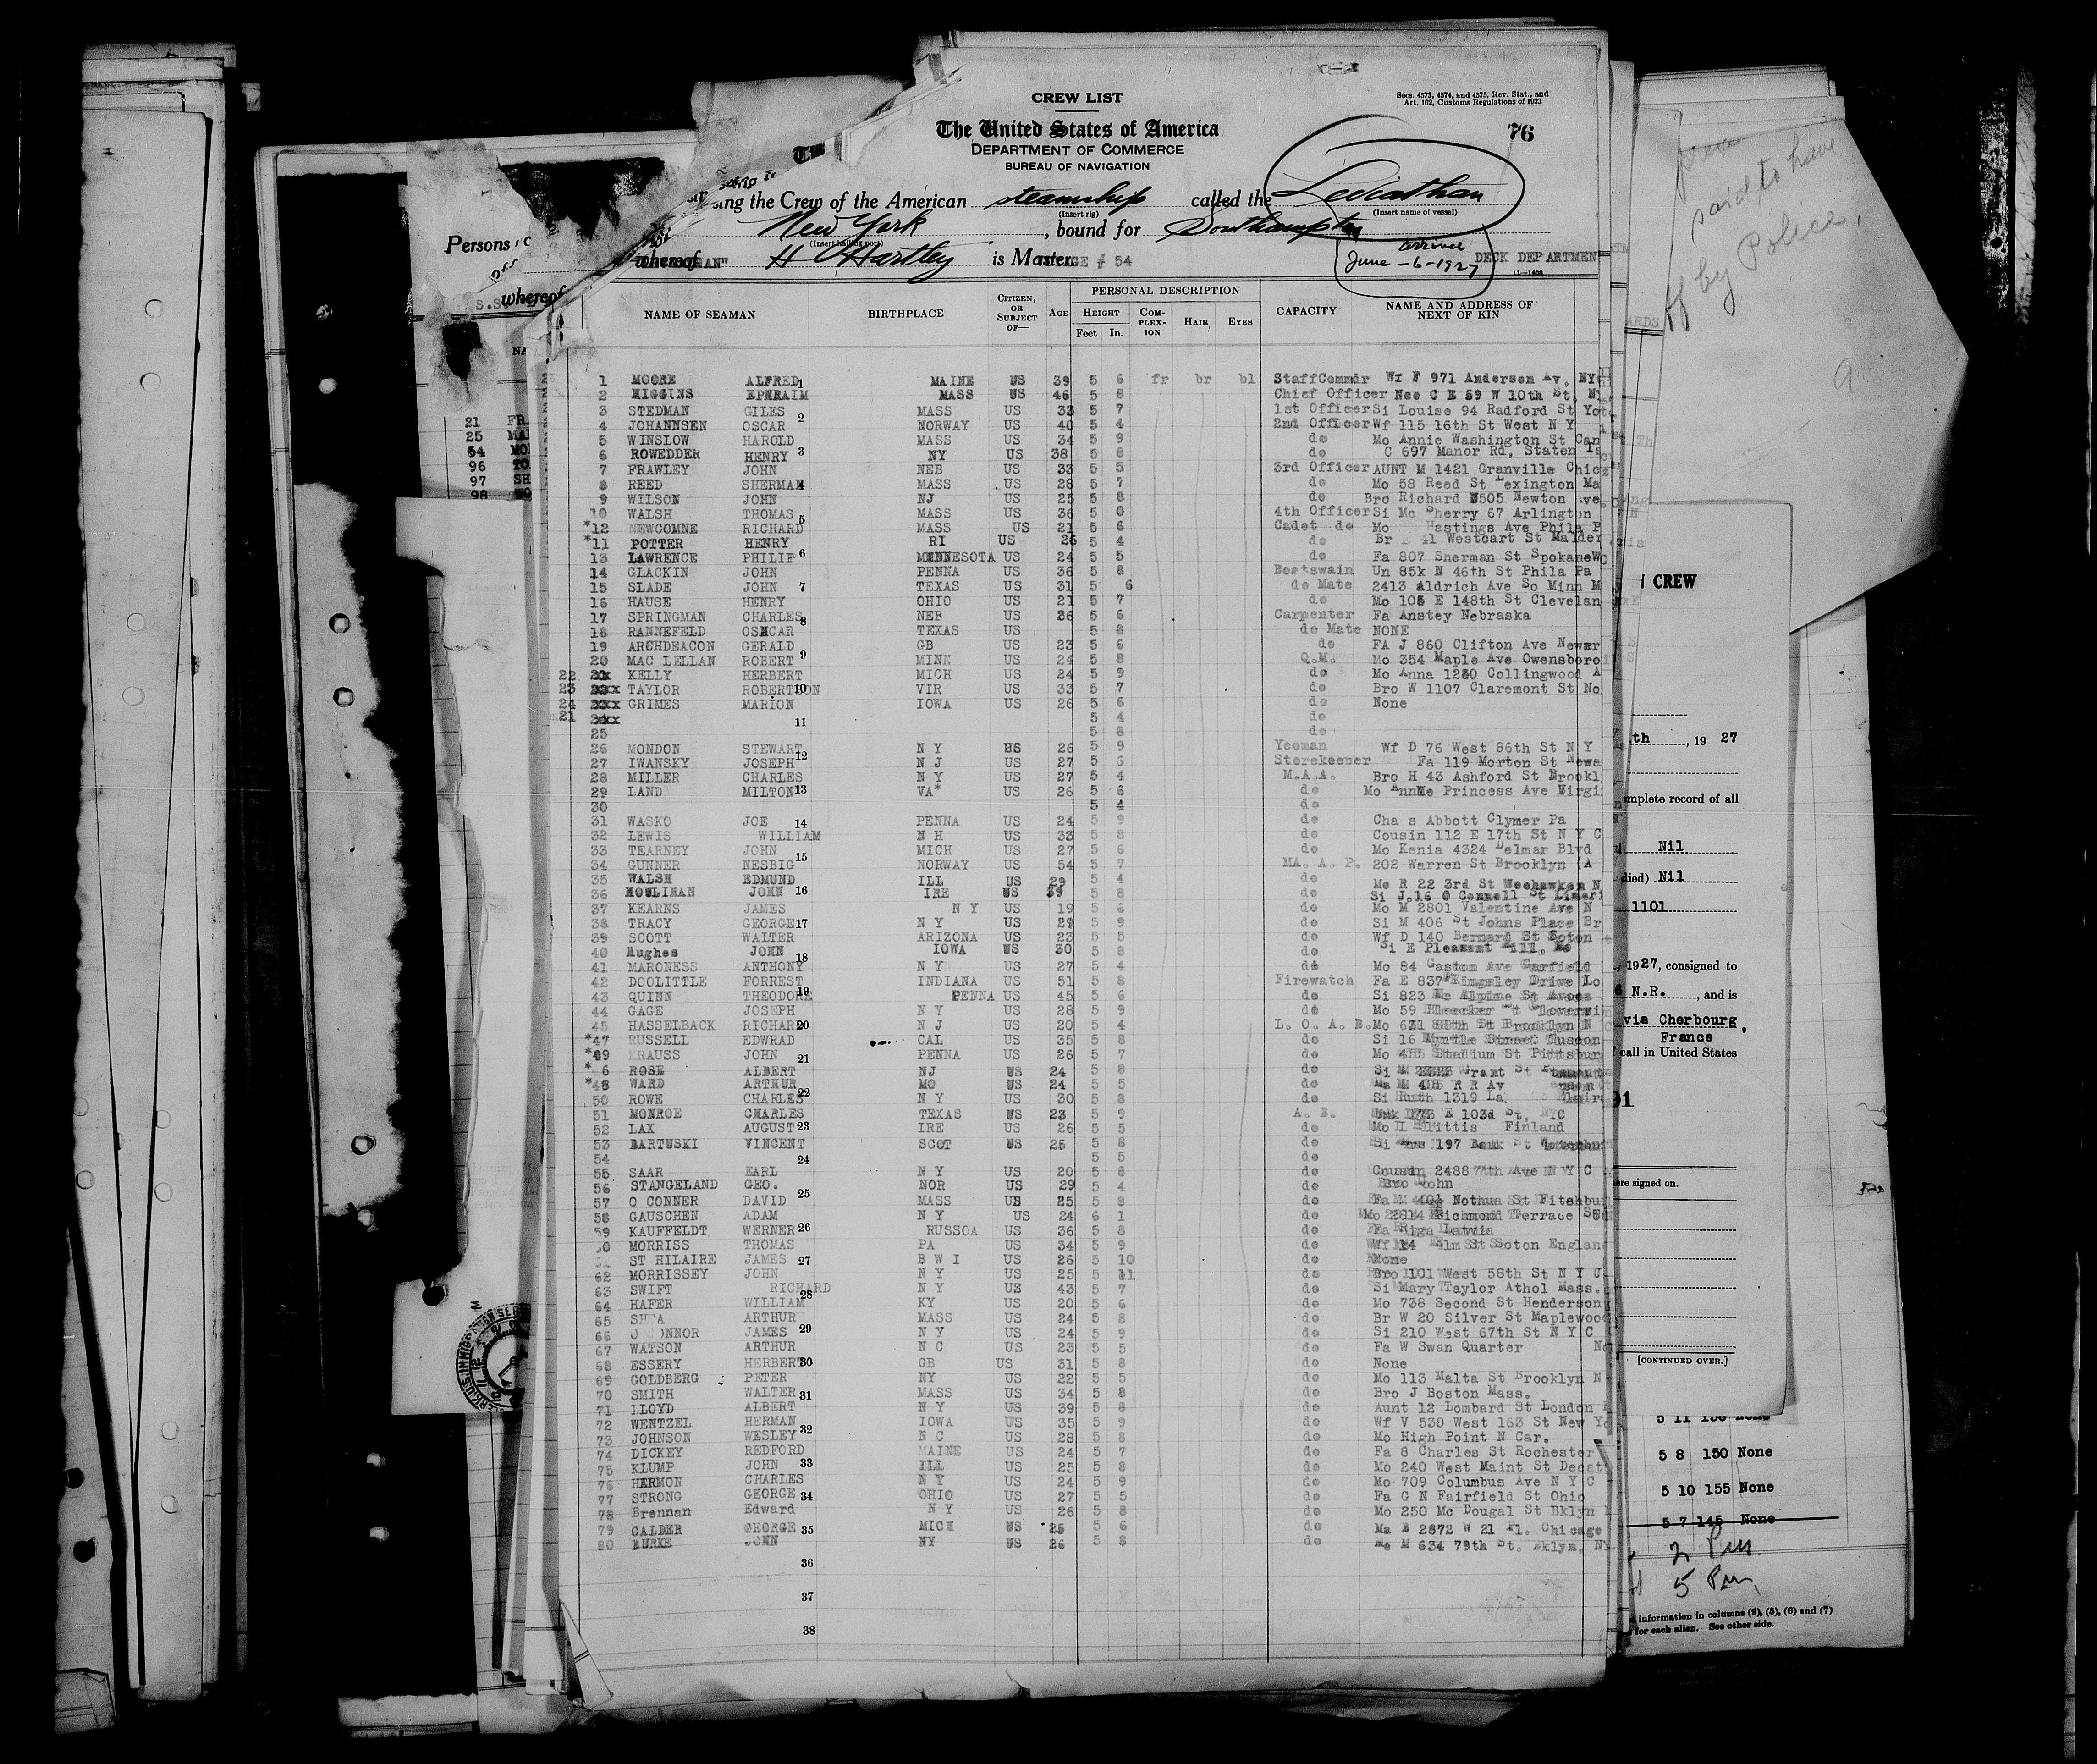 CREW LIST
Secs. 4573, 4574, and 4575, Rev. Stat., and
Art. 162, Customs Regulations of 1923
The United States of America
76
DEPARTMENT OF COMMERCE
BUREAU OF NAVIGATION
sing the Crew of the American steamship called the Leviathan
(Insert rig) (Insert name of vessel)
New York, bound for Southampton
(Insert hailing port)
whereof H Hartley is Master. 54
arrived
June -6-1927
DECK DEPARTMEN
11-1408
Persons
whereof
S.S.
NAME OF SEAMAN BIRTHPLACE CITIZEN, OR SUBJECT OF— AGE PERSONAL DESCRIPTION CAPACITY NAME AND ADDRESS OF NEXT OF KIN
HEIGHT COM-PLEX-ION HAIR EYES
Feet In.
1 MOORE ALFRED MAINE US 39 5 6 fr br bl StaffCommdr Wf F 971 Anderson Av. NY
2 HIGGINS EPHRAIM MASS US 46 5 8 Chief Officer Nee C E 59 W 10th St. N
3 STEDMAN GILES MASS US 33 5 7 1st Officer Si Louise 94 Radford St Yo
4 JOHANNSEN OSCAR NORWAY US 40 5 4 2nd Officer Wf 115 16th St West N Y
5 WINSLOW HAROLD MASS US 34 5 9 do Mo Annie Washington St Can
6 ROWEDDER HENRY NY US 38 5 8 do C 697 Manor Rd, Staten Is
7 FRAWLEY JOHN NEB US 33 5 5 3rd Officer AUNT M 1421 Granville Chic
8 REED SHERMAN MASS US 28 5 7 do Mo 58 Reed St Lexington Ma
9 WILSON JOHN NJ US 25 5 8 do Bro Richard N505 Newton Ave
10 WALSH THOMAS MASS US 36 5 0 4th Officer Si Mc Sherry 67 Arlington
*12 NEWCOMNE RICHARD MASS US 21 5 6 Cadet do Mo Hastings Ave Phila P
*11 POTTER HENRY RI US 26 5 4 do Br 41 Westcart St Malden
13 LAWRENCE PHILIP MINNESOTA US 24 5 5 do Fa 807 Sherman St Spokane
14 GLACKIN JOHN PENNA US 36 5 8 Boatswain Un 85k N 46th St Phila Pa
15 SLADE JOHN TEXAS US 31 5 6 do Mate 2413 Aldrich Ave So Minn M
16 HAUSE HENRY OHIO US 21 5 7 do Mo 105 E 148th St Clevelan
17 SPRINGMAN CHARLES NEB US 26 5 6 Carpenter Fa Anstey Nebraska
18 RANNEFELD OSCAR TEXAS US 5 8 do Mate NONE
19 ARCHDEACON GERALD GB US 23 5 6 do FA J 860 Clifton Ave Newar
20 MAC LELLAN ROBERT MINN US 24 5 8 Q.M. Mo 354 Maple Ave Owensboro
22 KELLY HERBERT MICH US 24 5 9 do Mo Anna 1280 Collingwood A
23 TAYLOR ROBERTSON VIR US 33 5 7 do Bro W 1107 Claremont St No
24 GRIMES MARION IOWA US 26 5 6 do None
21 5 4 do
25 5 8 do
26 MONDON STEWART N Y US 26 5 9 Yeoman Wf D 76 West 86th St N Y
27 IWANSKY JOSEPH N J US 27 5 6 Storekeeper Fa 119 Morton St Newa
28 MILLER CHARLES N Y US 27 5 4 M.A.A. Bro H 43 Ashford St Brookl
29 LAND MILTON VA* US 26 5 6 do Mo Annie Princess Ave Virgi
30 5 4 do
31 WASKO JOE PENNA US 24 5 9 do Cha s Abbott Clymer Pa
32 LEWIS WILLIAM N H US 33 5 8 do Cousin 112 E 17th St N Y C
33 TEARNEY JOHN MICH US 27 5 6 do Mo Kenia 4324 Delmar Blvd
34 GUNNER NESBIG NORWAY US 54 5 7 MA. A. P. 202 Warren St Brooklyn
35 WALSH EDMUND ILL US 29 5 4 do Mo R 22 3rd St Weehawken N
36 HOULIHAN JOHN IRE US 39 5 8 do Si J.16 O Connell St Limeri
37 KEARNS JAMES N Y US 19 5 6 do Mo M 2801 Valentine Ave N
38 TRACY GEORGE N Y US 29 5 9 do Si M 406 St Johns Place Br
39 SCOTT WALTER ARIZONA US 23 5 5 do Wf D 140 Bernard St Soton
40 Hughes JOHN IOWA US 30 5 8 do Si E Pleasant Hill, Mo
41 MARONESS ANTHONY N Y US 27 5 4 do Mo 84 Gaston Ave Garfield
42 DOOLITTLE FORREST INDIANA US 51 5 8 Firewatch Fa E 837 Kingsley Drive Lo
43 QUINN THEODORE PENNA US 45 5 6 do Si 823 Mc Alpine St Avoca
44 GAGE JOSEPH N Y US 28 5 9 do Mo 59 Bleecker St Gloversvi
45 HASSELBACK RICHARD N J US 20 5 4 L. O. A. B. Mo 631 88th St Brooklyn N
*47 RUSSELL EDWRAD CAL US 35 5 8 do Si 16 Myrtle Street
*49 KRAUSS JOHN PENNA US 26 5 7 do Mo Stadium St Pittsbur
*6 ROSE ALBERT NJ US 24 5 8 do Si M Grant St
*48 WARD ARTHUR MO US 24 5 5 do Ma M 405 R R Av
50 ROWE CHARLES N Y US 30 5 8 do Si Ruth 1319 La
51 MONROE CHARLES TEXAS US 23 5 9 A. B. 173 E 103d St, NYC
52 LAX AUGUST IRE US 26 5 5 do Mo L Pittis Finland
53 BARTUSKI VINCENT SCOT US 25 5 8 do Si 197 Bank St
54 5 5 do
55 SAAR EARL N Y US 20 5 8 do Cousin 2488 7th Ave N Y C
56 STANGELAND GEO. NOR US 29 5 4 do Bro John
57 O CONNER DAVID MASS US 25 5 8 do Fa M 401 Nothua St Fitchbu
58 GAUSCHEN ADAM N Y US 24 6 1 do Mo 2814 Richmond Terrace
59 KAUFFELDT WERNER RUSSOA US 36 5 8 do Fa Riga Latvia
60 MORRISS THOMAS PA US 34 5 9 do Wf 14 Elm St Soton Englan
ST HILAIRE JAMES B W I US 26 5 10 do None
62 MORRISSEY JOHN N Y US 25 5 11 do Bro 101 West 58th St N Y C
63 SWIFT RICHARD N Y US 43 5 7 do Si Mary Taylor Athol Mass.
64 HAFER WILLIAM KY US 20 5 6 do Mo 738 Second St Henderson
65 SHEA ARTHUR MASS US 24 5 8 do Br W 20 Silver St Maplewood
66 O ONNOR JAMES N Y US 24 5 9 do Si 210 West 67th St N Y C
67 WATSON ARTHUR N C US 23 5 5 do Fa W Swan Quarter
68 ESSERY HERBERT GB US 31 5 8 do None
69 GOLDBERG PETER NY US 22 5 5 do Mo 113 Malta St Brooklyn N
70 SMITH WALTER MASS US 34 5 8 do Bro J Boston Mass.
71 LLOYD ALBERT N Y US 39 5 8 do Aunt 12 Lombard St London
72 WENTZEL HERMAN IOWA US 35 5 9 do Wf V 530 West 163 St New Y
73 JOHNSON WESLEY N C US 28 5 8 do Mo High Point N Car.
74 DICKEY REDFORD MAINE US 24 5 7 do Fa 8 Charles St Rochester
75 KLUMP JOHN ILL US 25 5 8 do Mo 240 West Maint St Decat
76 HARMON CHARLES N Y US 24 5 9 do Mo 709 Columbus Ave N Y C
77 STRONG GEORGE OHIO US 27 5 5 do Fa G N Fairfield St Ohio
78 Brennan Edward N Y US 26 5 8 do Mo 250 Mc Dougal St Bklyn
79 CALDER GEORGE MICH US 25 5 6 do Ma B 2872 W 21 Pl. Chicago
80 BURKE JOHN NY US 26 5 8 do Mo M 634 79th St. Bklyn, NY
36
37
38
21 FR
25 MA
54 MO
96 TO
97 SH
98 WO
said, to have
by Police,
CREW
th, 19 27
mplete record of all
Nil
died) Nil
1101
1927, consigned to
6 N.R., and is
via Cherbourg,
France
call in United States
91
ere signed on.
[CONTINUED OVER.]
5 8 150 None
5 10 155 None
5 7 145 None
2 Pm
5 Pm
information in columns (2), (5), (6) and (7)
for each alien. See other side.